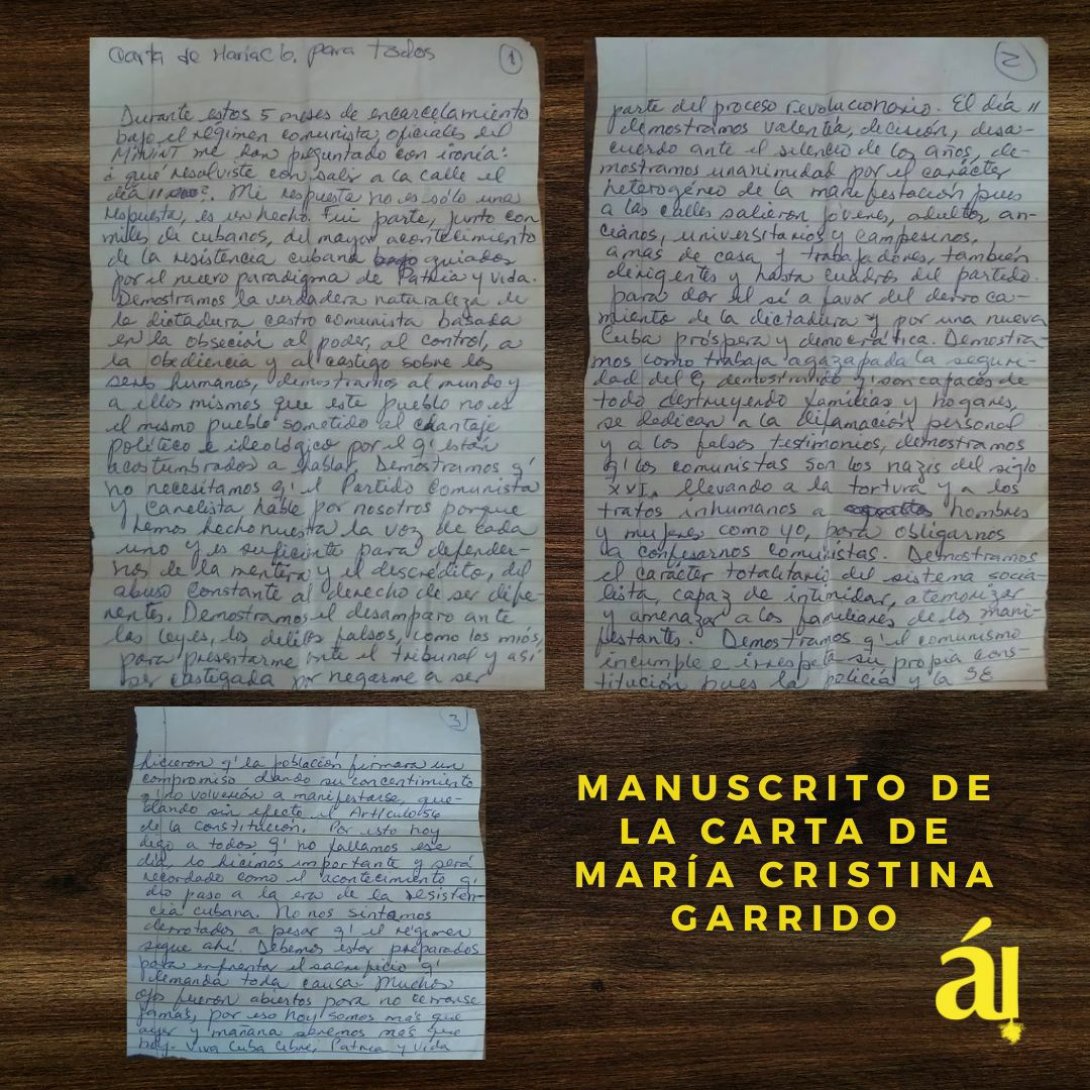 Carta de MaríaC G. para todos
1
Durante estos 5 meses de encarcelamiento
bajo el régimen comunista, oficiales del
MININT me han preguntado con ironía:
¿ qué resolviste con salir a la calle el
día 11 ? . Mi respuesta no es sólo una
respuesta, es un hecho. Fui parte, junto con
miles de cubanos, del mayor acontecimiento
de la resistencia cubana bajo guiados
por el nuevo paradigma de Patria y vida.
Demostramos la verdadera naturaleza de
la dictadura castro comunista basada
en la obseción al poder, al control, a
la obediencia y al castigo sobre los
seres humanos, demostramos al mundo y
a ellos mismos que este pueblo no es
el mismo pueblo sometido al chantaje
político e ideológico por el q' están
acostumbrados a hablar, Demostramos q'
no necesitamos q' el Partido Comunista
y Canelista hable por nosotros porque
hemos hecho nuestra la voz de cada
uno y es suficiente para defender-
nos de la mentira y el descrédito, del
abuso constante al derecho de ser dife-
rentes. Demostramos el desamparo ante
las leyes, los delitos falsos, como los míos,
para presentarme ante el tribunal y así
ser castigada por negarme a ser
2
parte del proceso revolucionario. El día 11
demostramos valentía, decisión, desa-
cuerdo ante el silencio de los años, de-
mostramos unanimidad por el carácter
heterogéneo de la manifestación pues
a las calles salieron jóvenes, adultos, an-
cianos, universitarios y campesinos,
amas de casa y trabajadores, también
dirigentes y hasta cuadros del partido
para dar el sí a favor del derroca-
miento de la dictadura y por una nueva
Cuba próspera y democrática. Demostra-
mos como trabaja agazapada la seguri-
dad del E, demostrando q' son capaces de
todo destruyendo familias y hogares,
se dedican a la difamación personal
y a los falsos testimonios, demostramos
q' los comunistas son los nazis del siglo
XVI, llevando a la tortura y a los
tratos inhumanos a hombres
y mujeres como yo, para obligarnos
a confesarnos comunistas. Demostramos
el carácter totalitario del sistema socia-
lista, capaz de intimidar, atemorizar
y amenazar a los familiares de los mani-
festantes. Demostramos q' el comunismo
incumple e irrespeta su propia cons-
titución pues la policía y la SE
3
hicieron q' la población firmara un
compromiso dando su concentimiento
q' no volverían a manifestarse, que-
dando sin efecto el Artículo 56
de la constitución. Por esto hoy
digo a todos q' no fallamos ese
día, lo hicimos importante y será
recordado como el acontecimiento q'
dio paso a la era de la resisten-
cia cubana. No nos sintamos
derrotados a pesar q' el régimen
sigue ahí. Debemos estar preparados
para enfrenta el sacrificio q'
demanda toda causa. Muchos
ojos fueron abiertos para no cerrarse
jamás, por eso hoy somos más que
ayer y mañana seremos más que
hoy. Viva Cuba Libre, Patria y Vida
MANUSCRITO DE
LA CARTA DE
MARÍA CRISTINA
GARRIDO
á